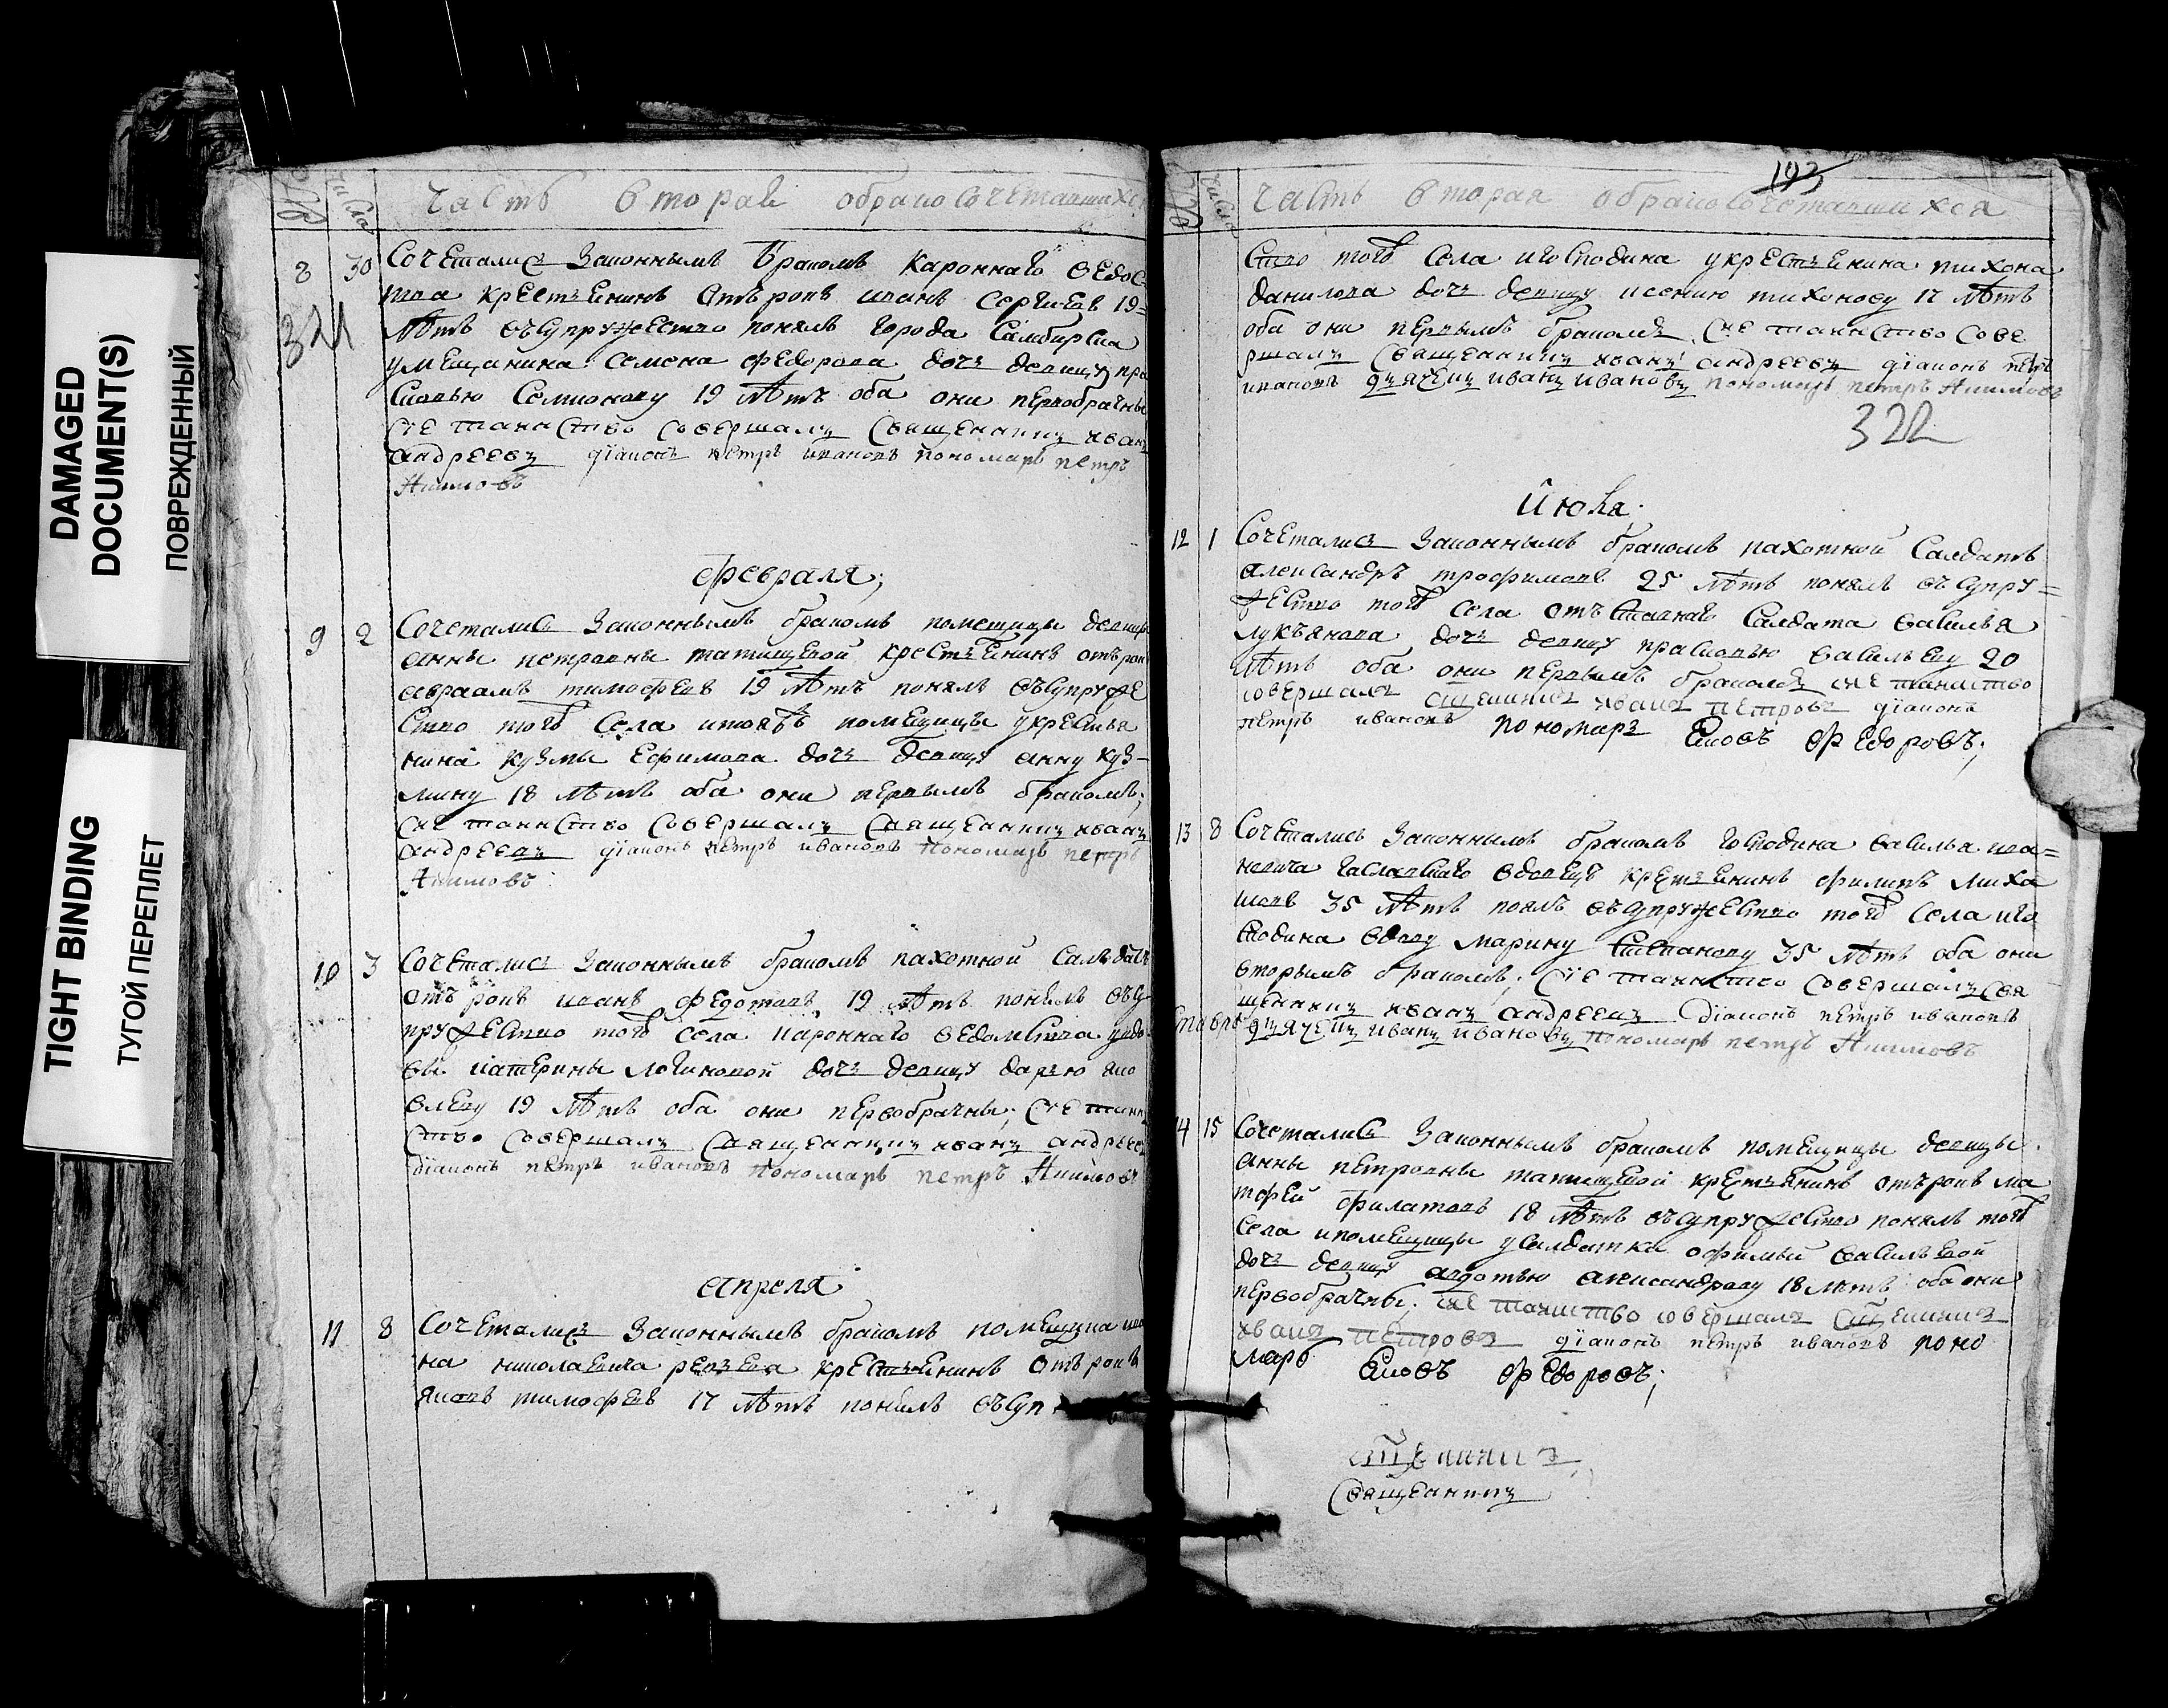 DAMAGED
DOCUMENT(S)
ПОВРЕЖДЕННЫЙ
TIGHT BINDING
ТУГОЙ ПЕРЕПЛЕТ
числа
часть вторая обракосочетавшихся
8 30 Сочетались Законнымъ бракомъ каронного ведомс
тва крестьянинъ отърокъ иванъ Сергиевъ 19=
лѣтъ въсупружество понялъ города Самбирска
умещанина Семена федорова дочь девицу пра
сковью Семионову 19 лѣтъ оба они первобрачны
321
сие таинство совершалъ священникъ иванъ
андреевъ диаконъ петръ ивановъ пономарь петръ
Акимовъ
февраля;
9 2 Сочетались Законнымъ бракомъ помещицы девицы
анны петровны татищевой крестьянинъ отърокъ
авраамъ тимофеевъ 19 лѣтъ понялъ въсупруже
ство тогожъ Села итоеяжъ помещицы укрестья
нина кузмы Ефимова дочь девицу анну куз-
мину 18 лѣтъ оба они первымъ бракомъ;
сие таинство совершалъ священникъ иванъ
андреевъ диаконъ петръ ивановъ пономарь петръ
Акимовъ
10 3 Сочетались Законнымъ бракомъ пахотной Салъдатъ
отърокъ иванъ федотовъ 19 лѣтъ понялъ въсу
пружество тогожъ села каронного ведомства увдо
вы катерины логиновой дочь девицу дарью яко
влеву 19 лѣтъ оба они первобрачны; сие таин
ство совершалъ священникъ иванъ андреевъ
диаконъ петръ ивановъ пономарь петръ Акимовъ
апреля
11 8 Сочетались Законнымъ бракомъ помещика ива
на николаевича крестьянинъ отърокъ
яковъ тимофеевъ 17 лѣтъ понялъ въсуп
193
числа
часть вторая обракосочетавшихся
ство тогожъ Села игосподина укрестьянина тихона
данилова дочь девицу ксению тихонову 17 лѣтъ
оба они первымъ бракомъ сие таинство сове
ршалъ священникъ иванъ андреевъ диаконъ петръ
ивановъ дьячекъ иванъ ивановъ пономарь петръ Акимовъ
322
Июня.
12 1 Сочетались Законнымъ бракомъ пахотной Салдатъ
александръ трофимовъ 25 лѣтъ понялъ въсупру=
жество тогожъ села отъставнаго Салдата василья
лукъянова дочь девицу прасковью васильеву 20
лѣтъ оба они первымъ бракомъ сие таинство
совершалъ сщенникъ иванъ петровъ диаконъ
петръ ивановъ пономарь яковъ федоровъ;
13 8 Сочетались Законнымъ бракомъ господина василья ива=
новича вдовецъ крестьянинъ филипъ миха
35 лѣтъ понялъ въсупружество тогожъ села иго
сподина вдову марину степанову 35 лѣтъ оба они
вторымъ бракомъ; сие таинство совершалъ свя
щенникъ иванъ андреевъ диаконъ петръ ивановъ
дьячекъ иванъ ивановъ пономарь петръ Акимовъ
14 15 Сочетались Законнымъ бракомъ помещицы девицы
анны петровны татищевой крестьянинъ отърокъ ма
тфей филатовъ 18 лѣтъ въсупружество понялъ тогожъ
села ипомещицы усалдатки офимьи васильевой
дочь девицу авдотью александрову 18 лѣтъ оба они
первобрачны; сие таинство совершалъ сщенникъ
иванъ петровъ диаконъ петръ ивановъ поно
марь яковъ федоровъ;
сщенникъ
священникъ